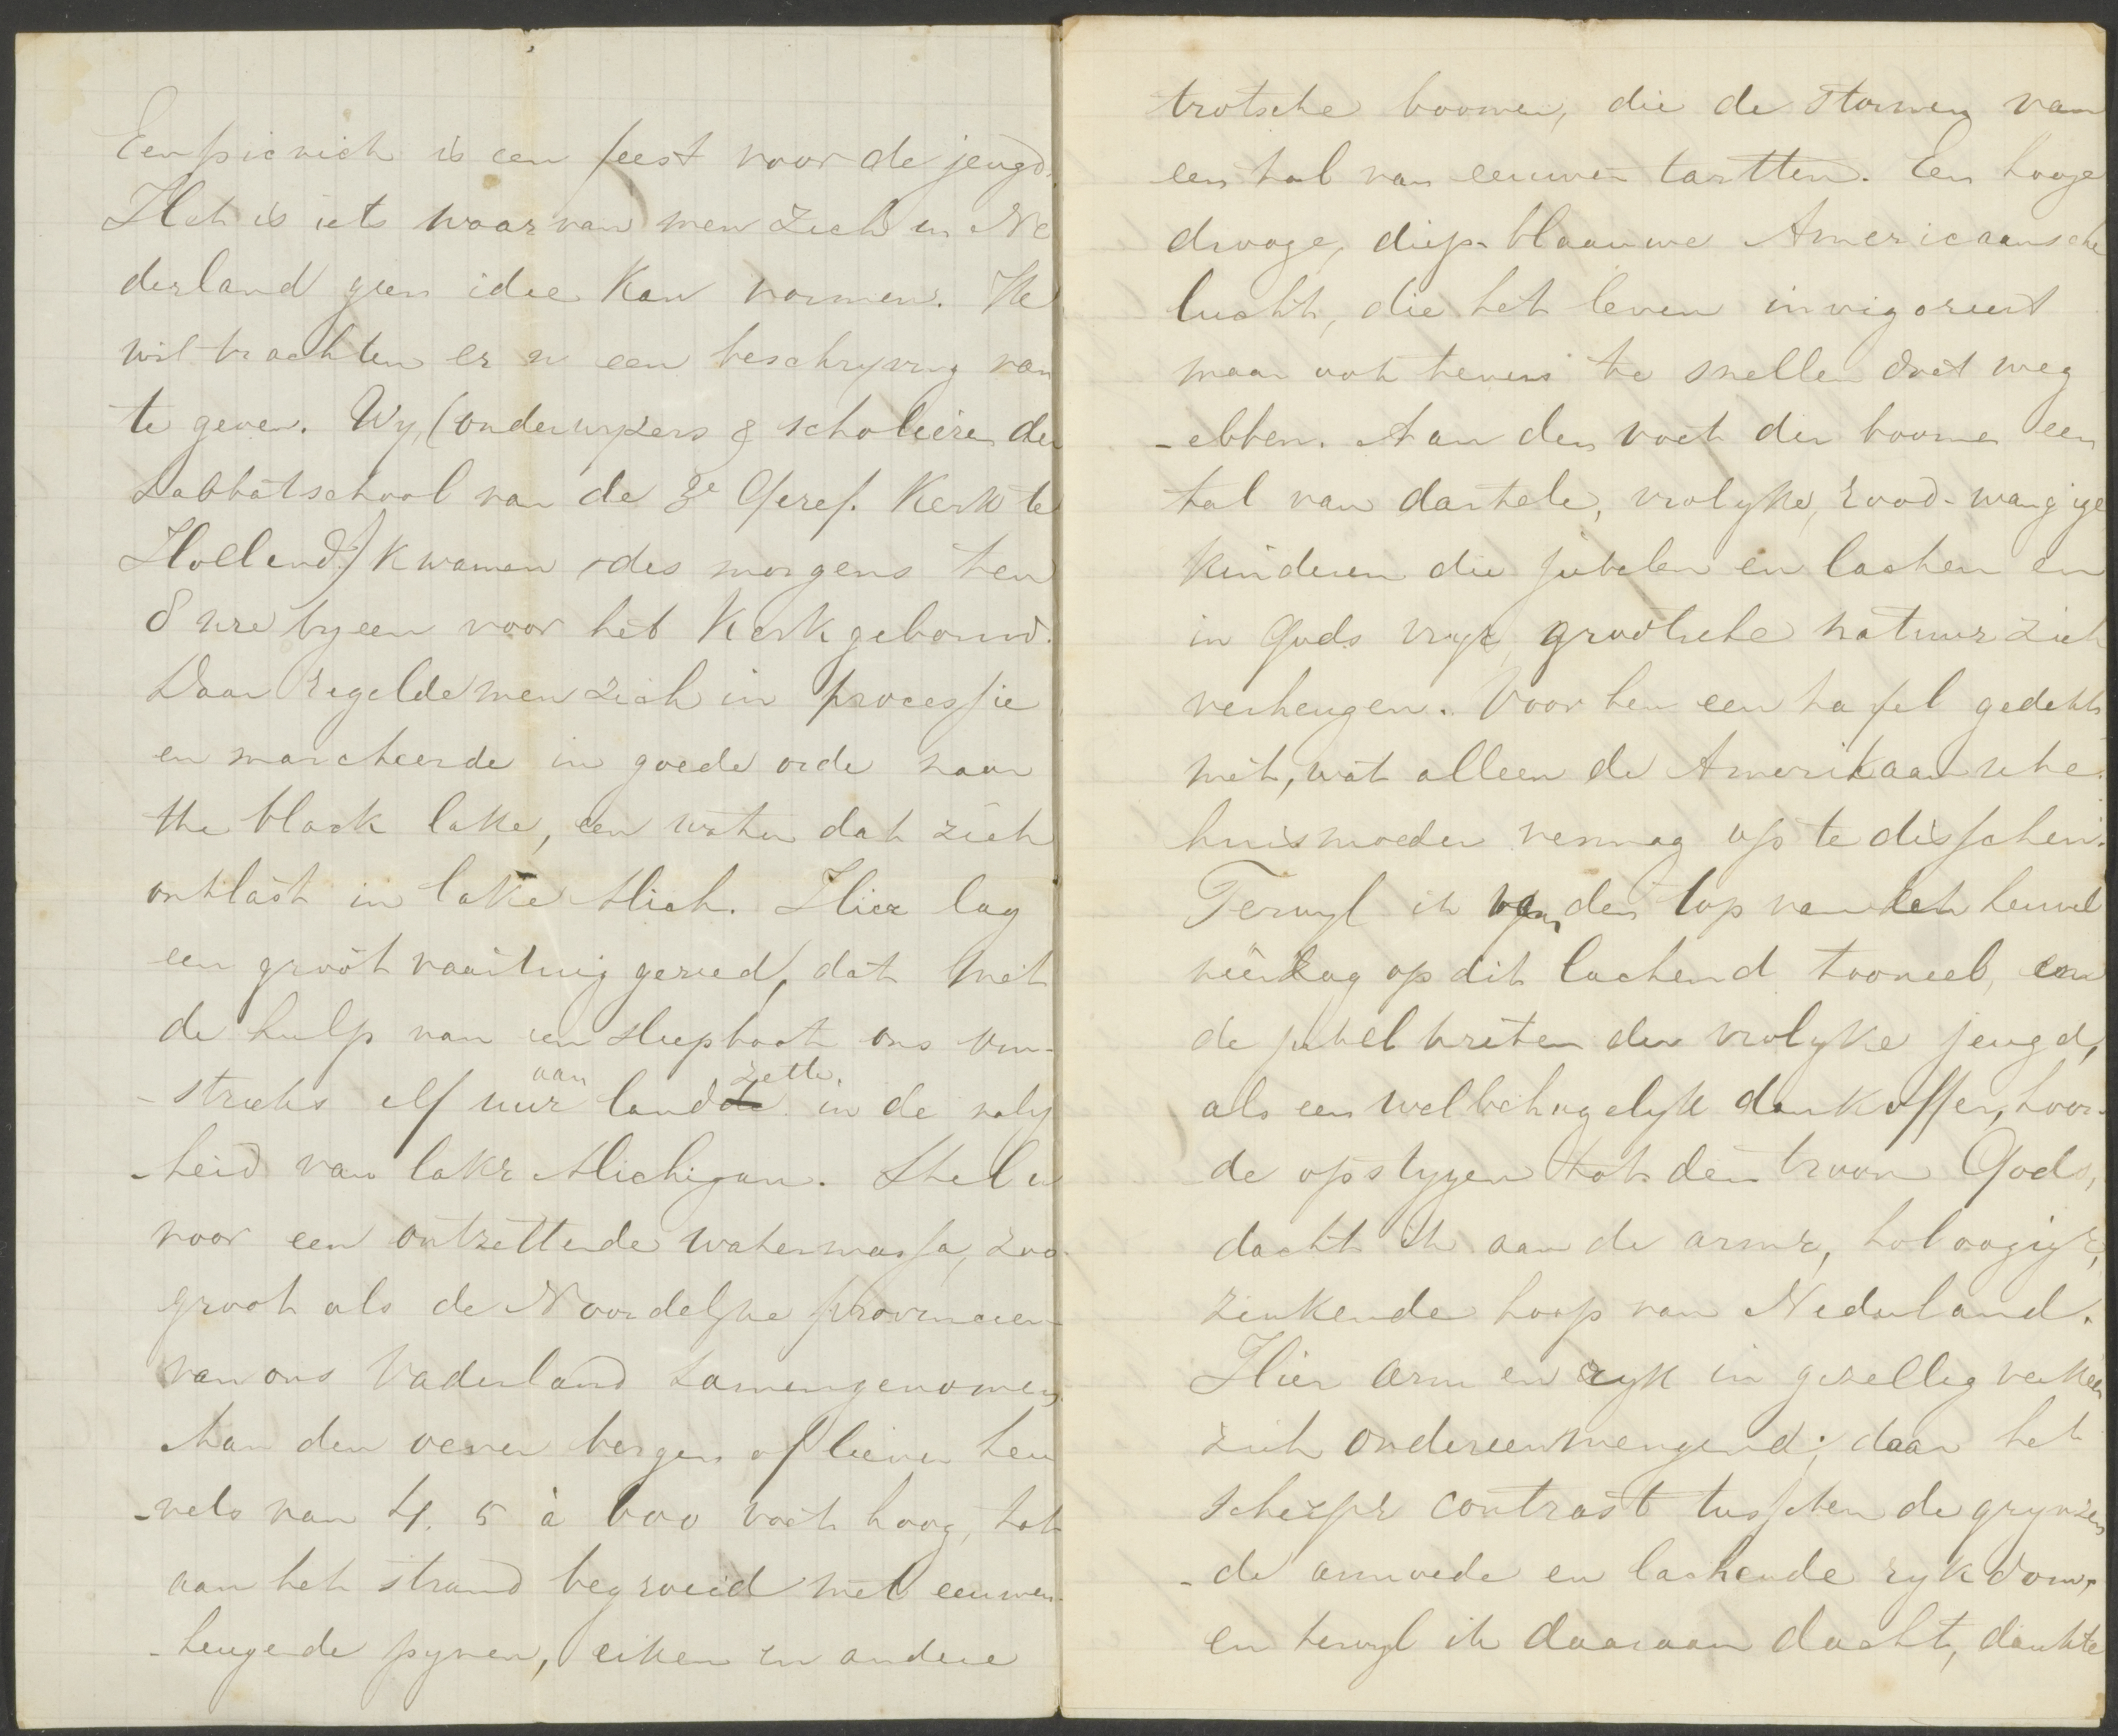 Een picnick is een feest voor de jeugd.
Het is iets waarvan men zich in Ne
derland geen idee kan vormen. Ik
wil trachten er u een beschryving van
te geven. Wy, (onderwyzers & scholieren der
Sabbatschool van de 3e Geref. Kerk te
Holland) kwamen des morgens ten
8 ure byeen voor het Kerkgebouw.
Daar regelde men zich in processie
en marcheerde in goede orde naar
the black lake, een water dat zich
ontlast in lake Mich. Hier lag
een groot vaartuig gereed, dat met
de hulp van een sleepboot ons om-
-streeks elf uur aan land zette. in de naby
-heid van lake Michigan. Stel u
voor een ontzettende watermassa, zoo
groot als de Noordelyke provincien
van ons Vaderland samengenomen,
Aan den oever bergen of liever heu
-vels van 4. 5 à 600 voet hoog, tot
aan het strand begroeid met eeuwen-
-heugende pynen, eiken en andere
trotsche boomen, die de stormen van
een tal van eeuwen tartten. Een hooge
drooge, diep-blaauwe Americaansche
lucht, die het leven invigoreert
maar ook tevens te sneller doet weg
-ebben. Aan den voet der boomen een
tal van dartele, vrolyke, rood-wangige
kinderen die jubelen en lachen en
in Gods vrye, grootsche natuur zich
verheugen. Voor hen een tafel gedekt
met, wat alleen de Amerikaansche
huismoeder vermag op te disschen.
Terwyl ik van den top van den heuvel
neerzag op dit lachend tooneel, en
de jubelkreten der vrolyke jeugd,
als een welbehagelyk dankoffer, hoor-
de opstygen tot den troon Gods,
dacht ik aan de arme, holoogige,
zinkende hoop van Nederland.
Hier arm en ryk in gezellig verkeer
zich ondereenmengend; daar het
scherpe contrast tusschen de grynzen
-de armoede en lachende rykdom,
en terwyl ik daaraan dacht, dankte